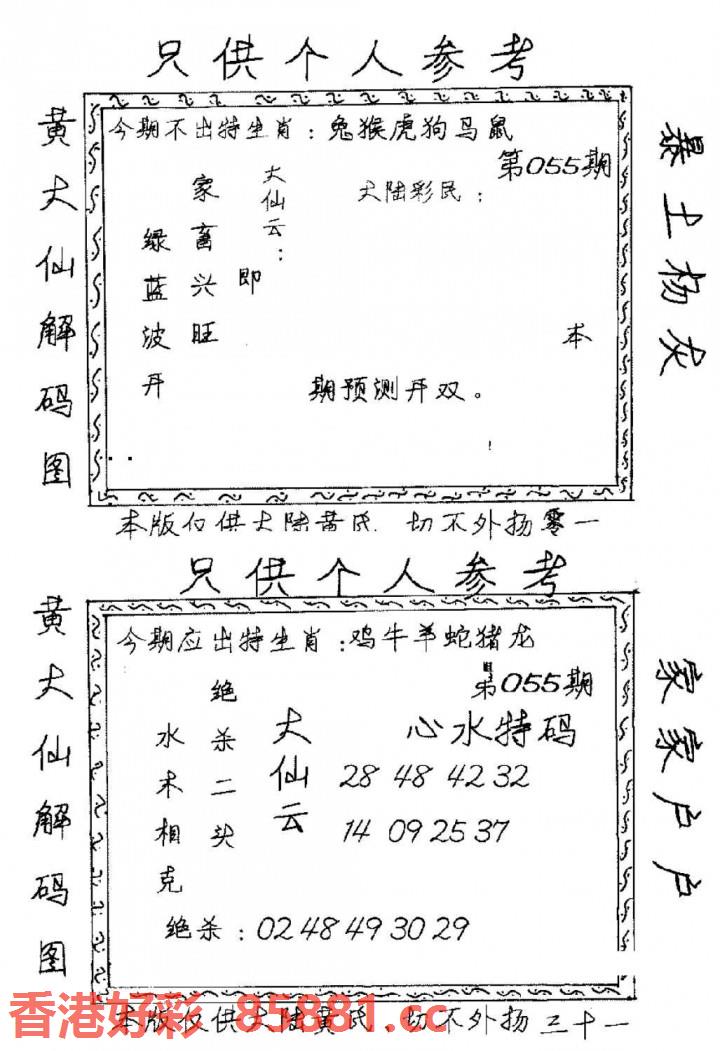 只供个人参考
黄大仙解码图
暴土杨灰
今期不出特生肖：兔猴虎狗马鼠
第055期
大陆彩民：
大仙云：
即
家畜兴旺
绿蓝波开
本
期预测开双。
本版仅供大陆黄民 切不外扬 零一
只供个人参考
黄大仙解码图
家家户户
今期应出特生肖：鸡牛羊蛇猪龙
第055期
心水特码
大仙云
绝杀二头
水木相克
28 48 42 32
14 09 25 37
绝杀：02 48 49 30 29
本版仅供大陆黄民，切不外扬 三十一
香港好彩 85881.cc